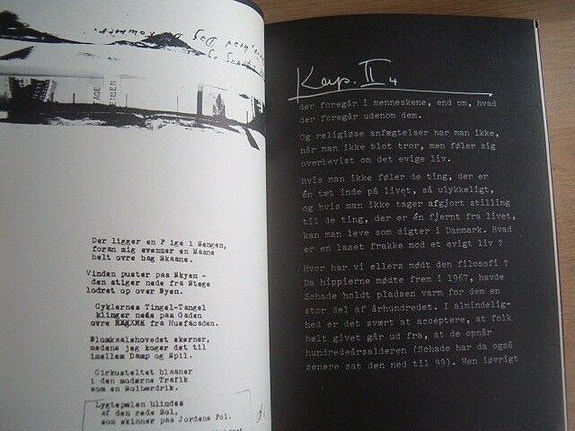 Der ligger en P ige i Sengen,
foran mig svømmer en Maane
helt ovre bag Skaane.
Vinden puster paa Skyen -
den stiger nede fra Stege
lodret op over Byen.
Cyklernes Tingel-Tangel
klinger nede paa Gaden
ovre fra Husfacaden.
Blomkaalshovedet skørner,
medens jeg koger det til
imellem Damp og Spil.
Cirkusteltet blaaner
i den moderne Trafik
som en Solbærdrik.
Lygtepælen blindes
af den røde Sol,
som skinner paa Jordens Pol.
Kap. II 4
der foregår i menneskene, end om, hvad
der foregår udenom dem.
Og religiøse anfægtelser har man ikke,
når man ikke blot tror, men føler sig
overbevist om det evige liv.
Hvis man ikke føler de ting, der er
én tæt inde på livet, så ulykkeligt,
og hvis man ikke tager afgjort stilling
til de ting, der er én fjernt fra livet,
kan man leve som digter i Danmark. Hvad
er en laset frakke mod et evigt liv ?
Hvor har vi ellers mødt den filosofi ?
Da hippierne mødte frem i 1967, havde
Schade holdt pladsen varm for dem en
stor del af århundredet. I almindelig-
hed er det svært at acceptere, at folk
helt givet går ud fra, at de opnår
hundredeårsalderen (Schade har da også
senere sat den ned til 99). Men iøvrigt